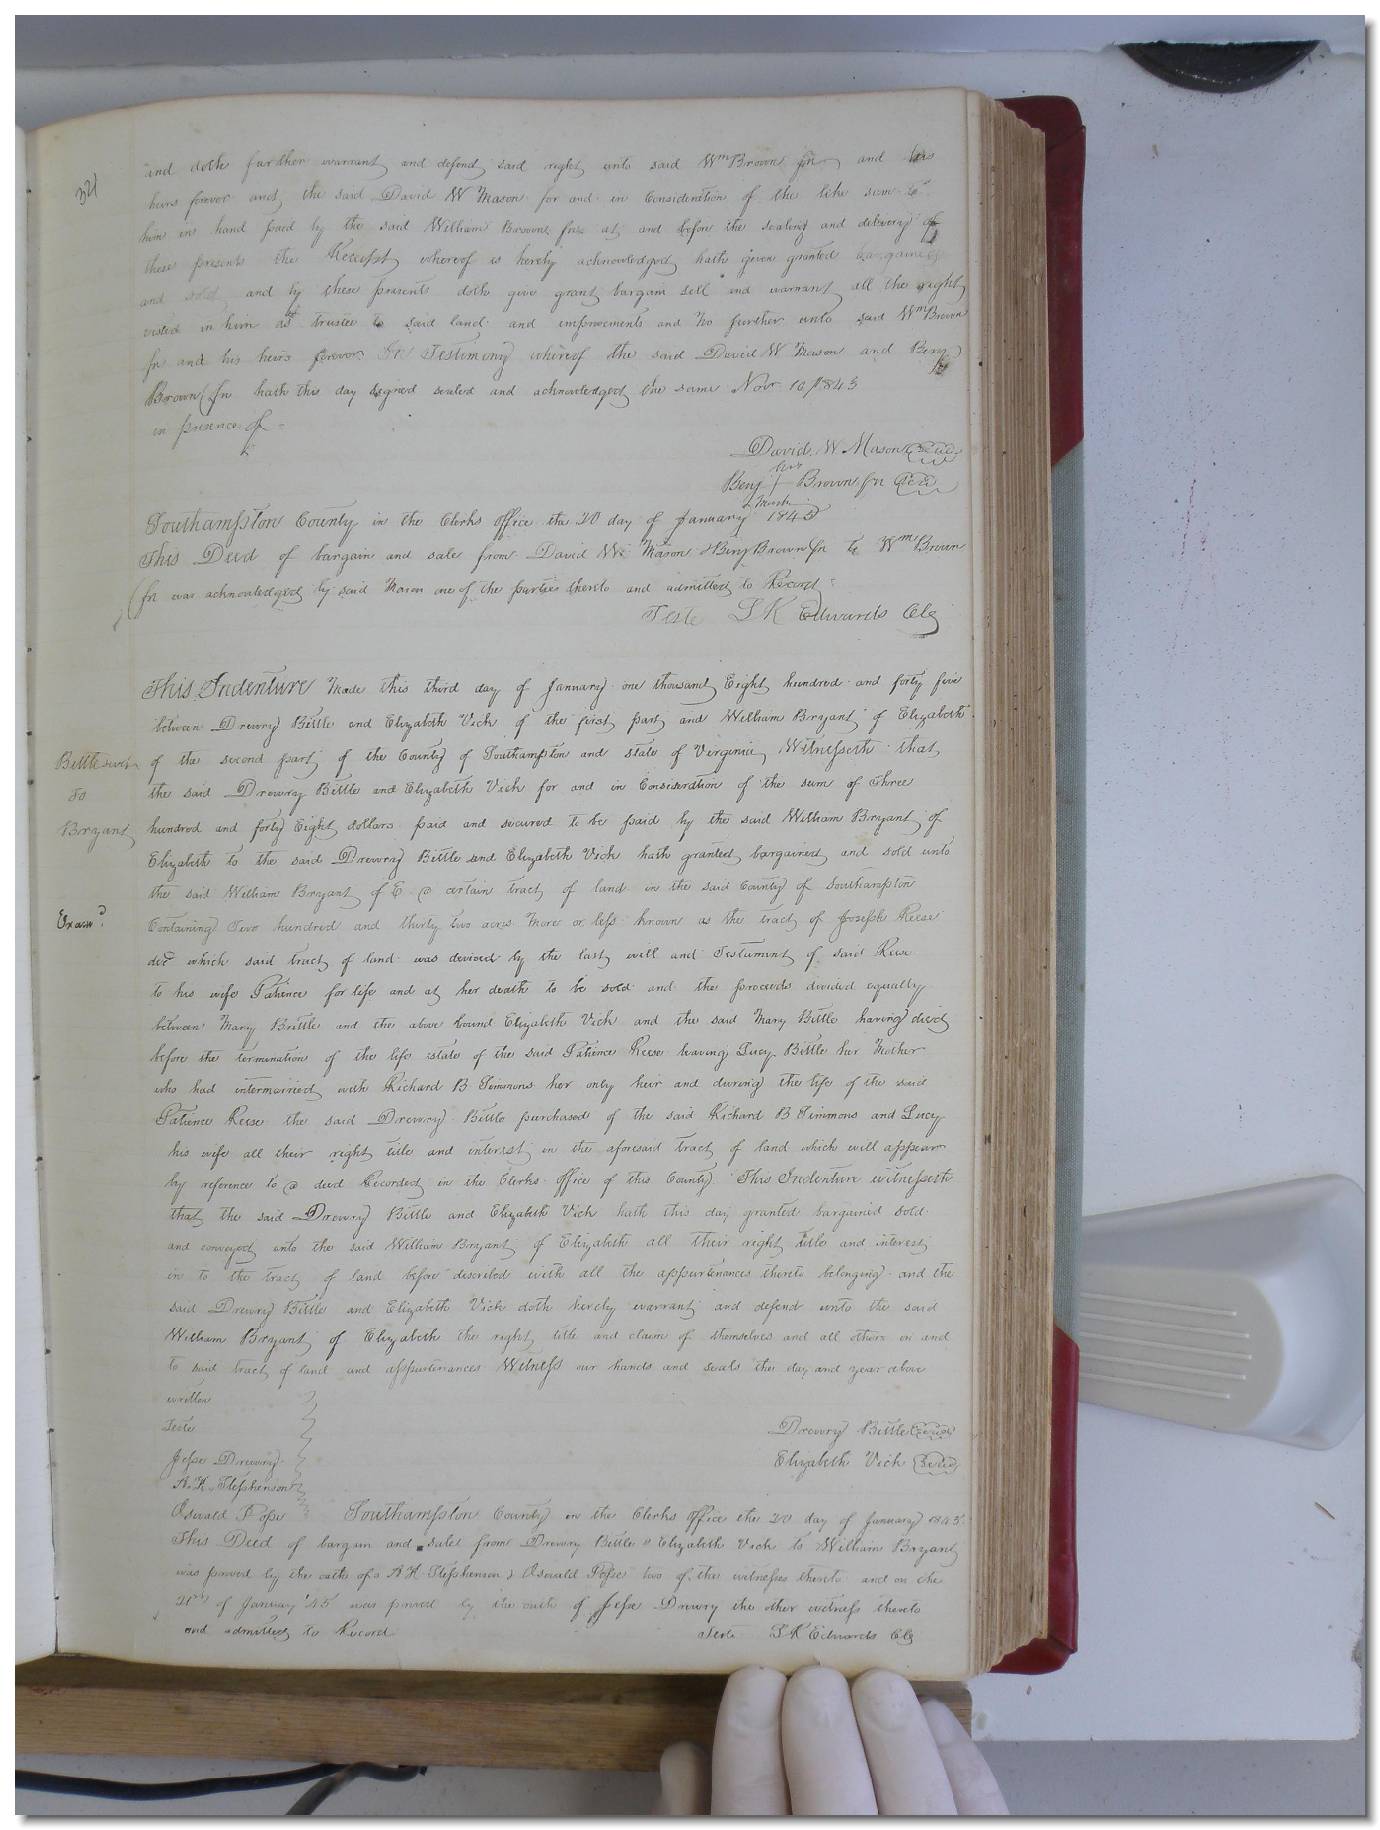 321
and doth further warrant and defend said right unto said Wm Brown Jn and his
heirs forever and the said David W Mason for and in Consideration of the like sum to
him in hand paid by the said William Brown Jn at and before the sealing and delivery of
these presents the Receipt whereof is hereby acknowledged hath given granted bargained
and sold and by these presents doth give grant bargain sell and warrant all the right
vested in him as trustee to said land and improvements and no further unto said Wm Brown
Jn and his heirs forever In Testimony whereof the said David W Mason and Benj
Brown Jn hath this day signed sealed and acknowledged the same Nov 10 1843
in presence of
David W. Mason Seal
his
Benj + Brown Jn Seal
mark
Southampton County in the Clerks office the 20 day of January 1845
This Deed of bargain and sale from David W Mason & Benj Brown Jn to Wm Brown
Jn was acknowledged by said Mason one of the parties thereto and admitted to Record
Teste L R Edwards Clg
This Indenture Made this third day of January one thousand Eight hundred and forty five
between Drewry Bittle and Elizabeth Vick of the first part and William Bryant of Elizabeth
Bittle
of the second part of the County of Southampton and state of Virginia Witnesseth that
To
the said Drewry Bittle and Elizabeth Vick for and in Consideration of the sum of Three
Bryant
hundred and forty Eight dollars paid and secured to be paid by the said William Bryant of
Elizabeth to the said Drewry Bittle and Elizabeth Vick hath granted bargained and sold unto
the said William Bryant of E a certain tract of land in the said County of Southampton
Examd
Containing Two hundred and thirty two acres More or less known as the tract of Joseph Reese
decd which said tract of land was devised by the last will and Testament of said Reese
to his wife Patience for life and at her death to be sold and the proceeds divided equally
between Mary Brittle and the above bound Elizabeth Vick and the said Mary Bittle having died
before the termination of the life estate of the said Patience Reese leaving Lucy Bittle her Mother
who had intermarried with Richard B Simmons her only heir and during the life of the said
Patience Reese the said Drewry Bittle purchased of the said Richard B Simmons and Lucy
his wife all their right title and interest in the aforesaid tract of land which will appear
by reference to a deed Recorded in the Clerks office of this County This Indenture witnesseth
that the said Drewry Bittle and Elizabeth Vick hath this day granted bargained sold
and conveyed unto the said William Bryant of Elizabeth all their right title and interest
in to the tract of land before described with all the appurtenances thereto belonging and the
said Drewry Bittle and Elizabeth Vick doth hereby warrant and defend unto the said
William Bryant of Elizabeth the right title and claim of themselves and all others in and
to said tract of land and appurtenances Witness our hands and seals the day and year above
written
Teste
Drewry Bittle Seal
Jesse Drewry
Elizabeth Vick Seal
A. K. Stephenson
Oswald Pope
Southampton County in the Clerks office the 20 day of January 1845
This Deed of bargain and sale from Drewry Bittle " Elizabeth Vick to William Bryant
was proved by the oaths of A K Stephenson & Oswald Pope two of the witnesses thereto and on the
21st of January '45 was proved by the oath of Jesse Drewry the other witness thereto
and admitted to Record
Teste L R Edwards Clg